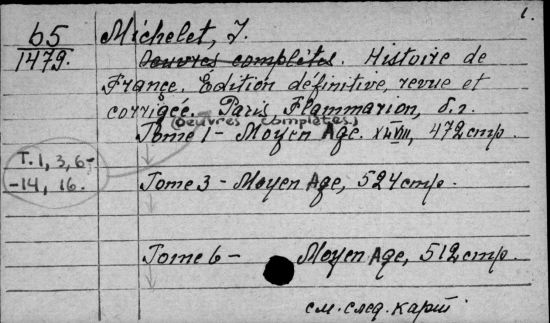 1.
65
1479.
Michelet, J.
Oeuvres complètes. Histoire de
France. Édition définitive, revue et
corrigée. Paris Flammarion, б.г.
(Oeuvres complètes)
Tome 1 - Moyen Age. 472 стр.
T. 1, 3, 6-
-14, 16.
Tome 3 - Moyen Age, 524 стр.
Tome 6 - Moyen Age, 512 стр.
см. след. карт